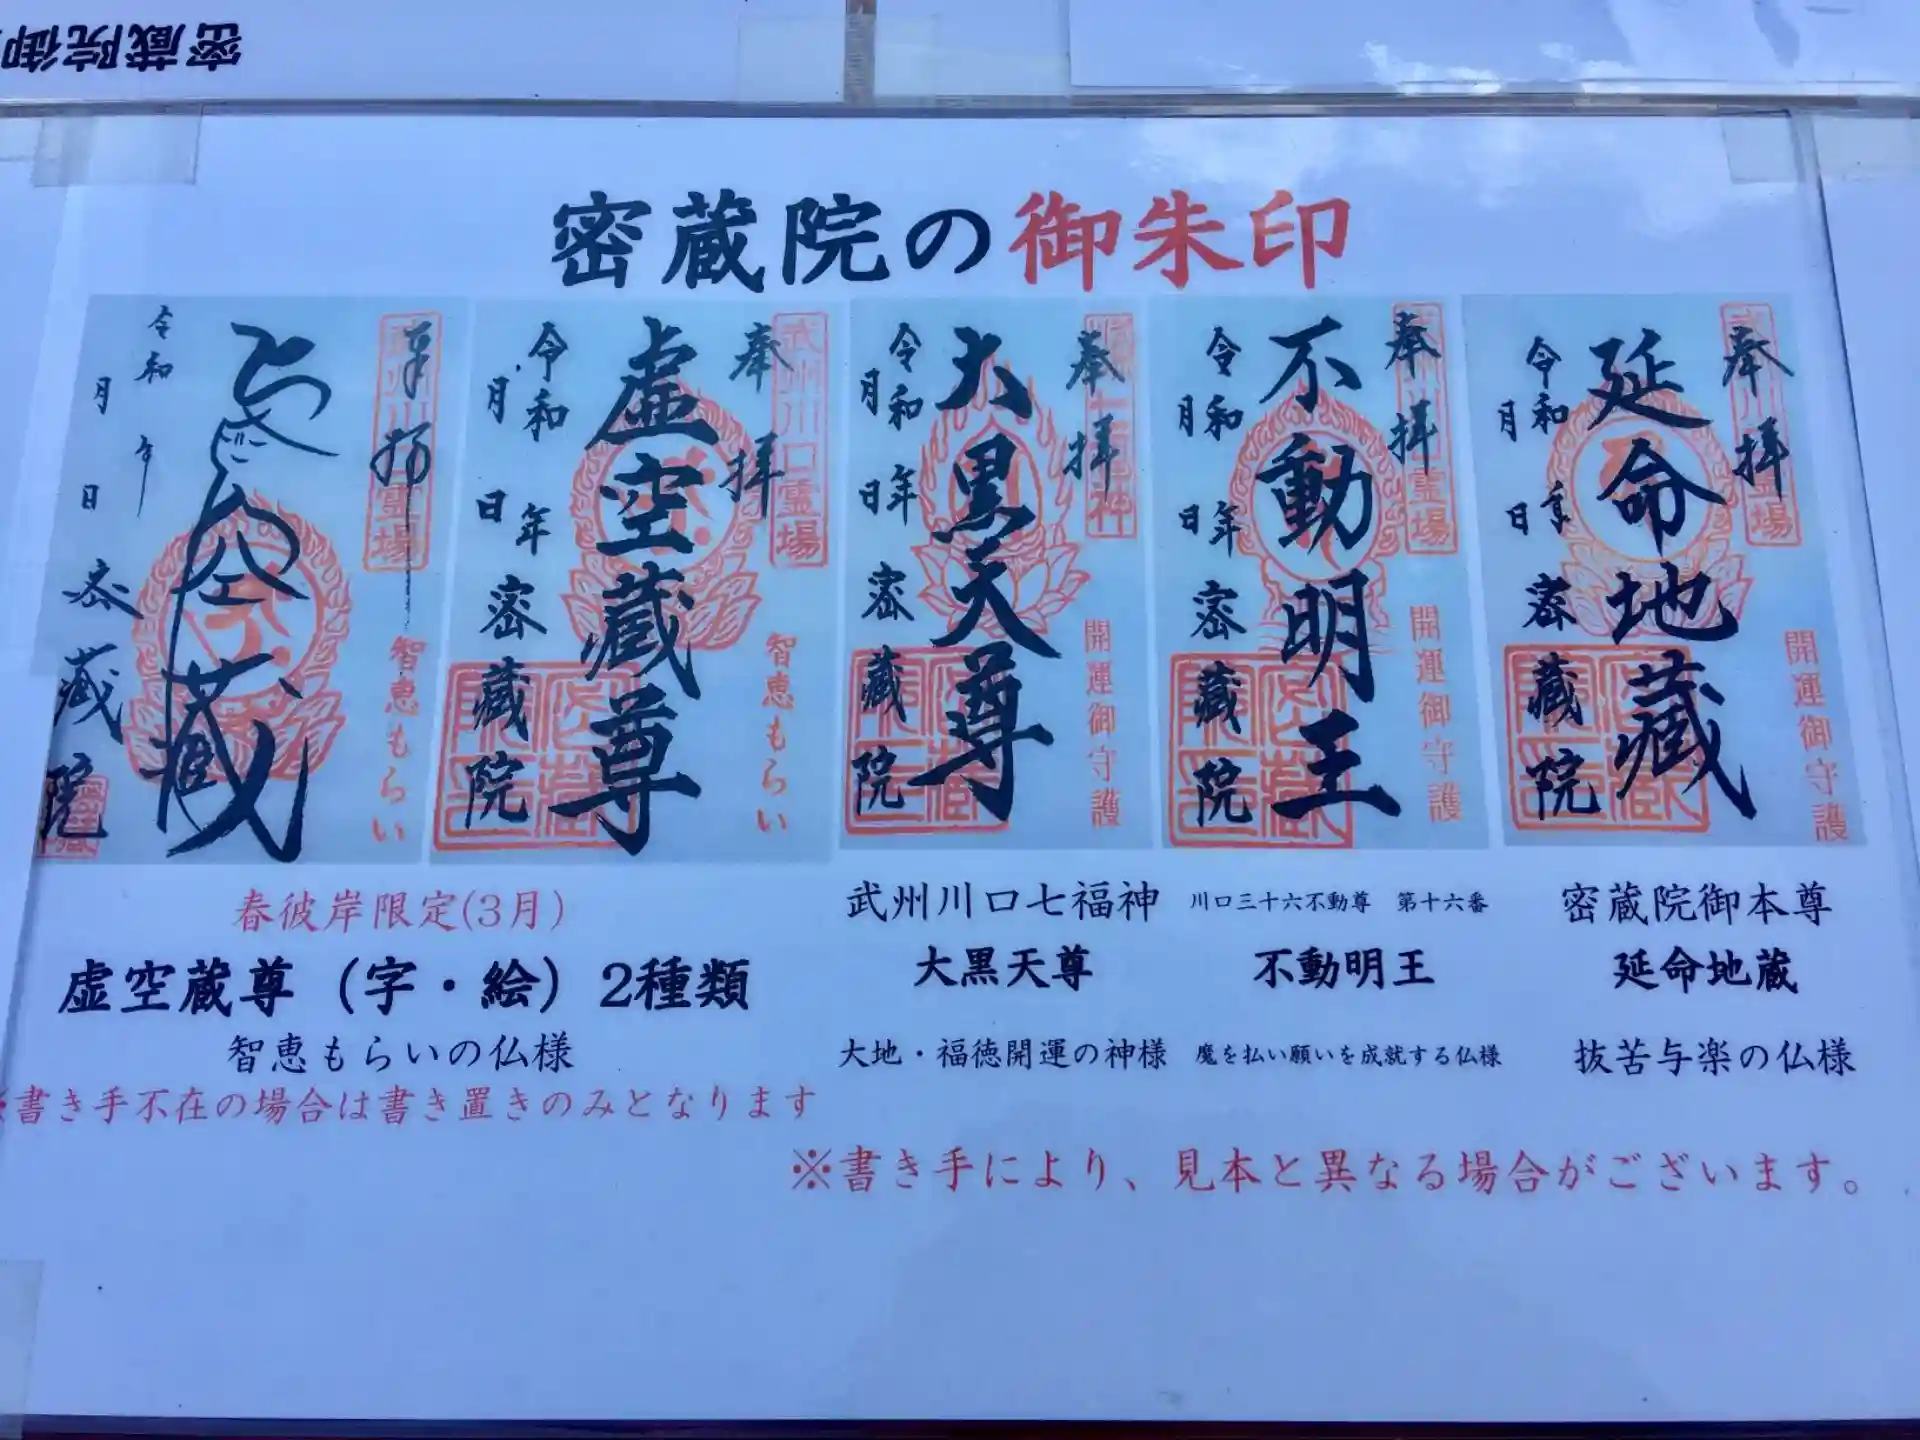 密蔵院御
密蔵院の御朱印
奉拝
延命地蔵
令和 年
月 日
密蔵院
開運御守護
奉拝
不動明王
令和 年
月 日
密蔵院
開運御守護
奉拝
大黒天尊
令和 年
月 日
密蔵院
開運御守護
武州川口霊場
奉拝
虚空蔵尊
令和 年
月 日
密蔵院
智恵もらい
奉拝
令和 年
月 日
密蔵院
智恵もらい
春彼岸限定(3月)
虚空蔵尊（字・絵）2種類
智恵もらいの仏様
※書き手不在の場合は書き置きのみとなります
武州川口七福神
大黒天尊
大地・福徳開運の神様
川口三十六不動尊 第十六番
不動明王
魔を払い願いを成就する仏様
密蔵院御本尊
延命地蔵
抜苦与楽の仏様
※書き手により、見本と異なる場合がございます。